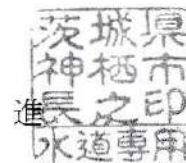 茨城県
神栖市
進
長之印
水道専用